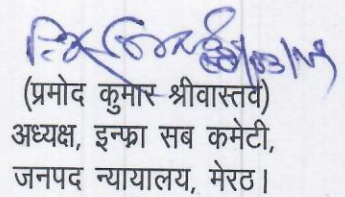 (प्रमोद कुमार श्रीवास्तव)
अध्यक्ष, इन्फ्रा सब कमेटी,
जनपद न्यायालय, मेरठ।